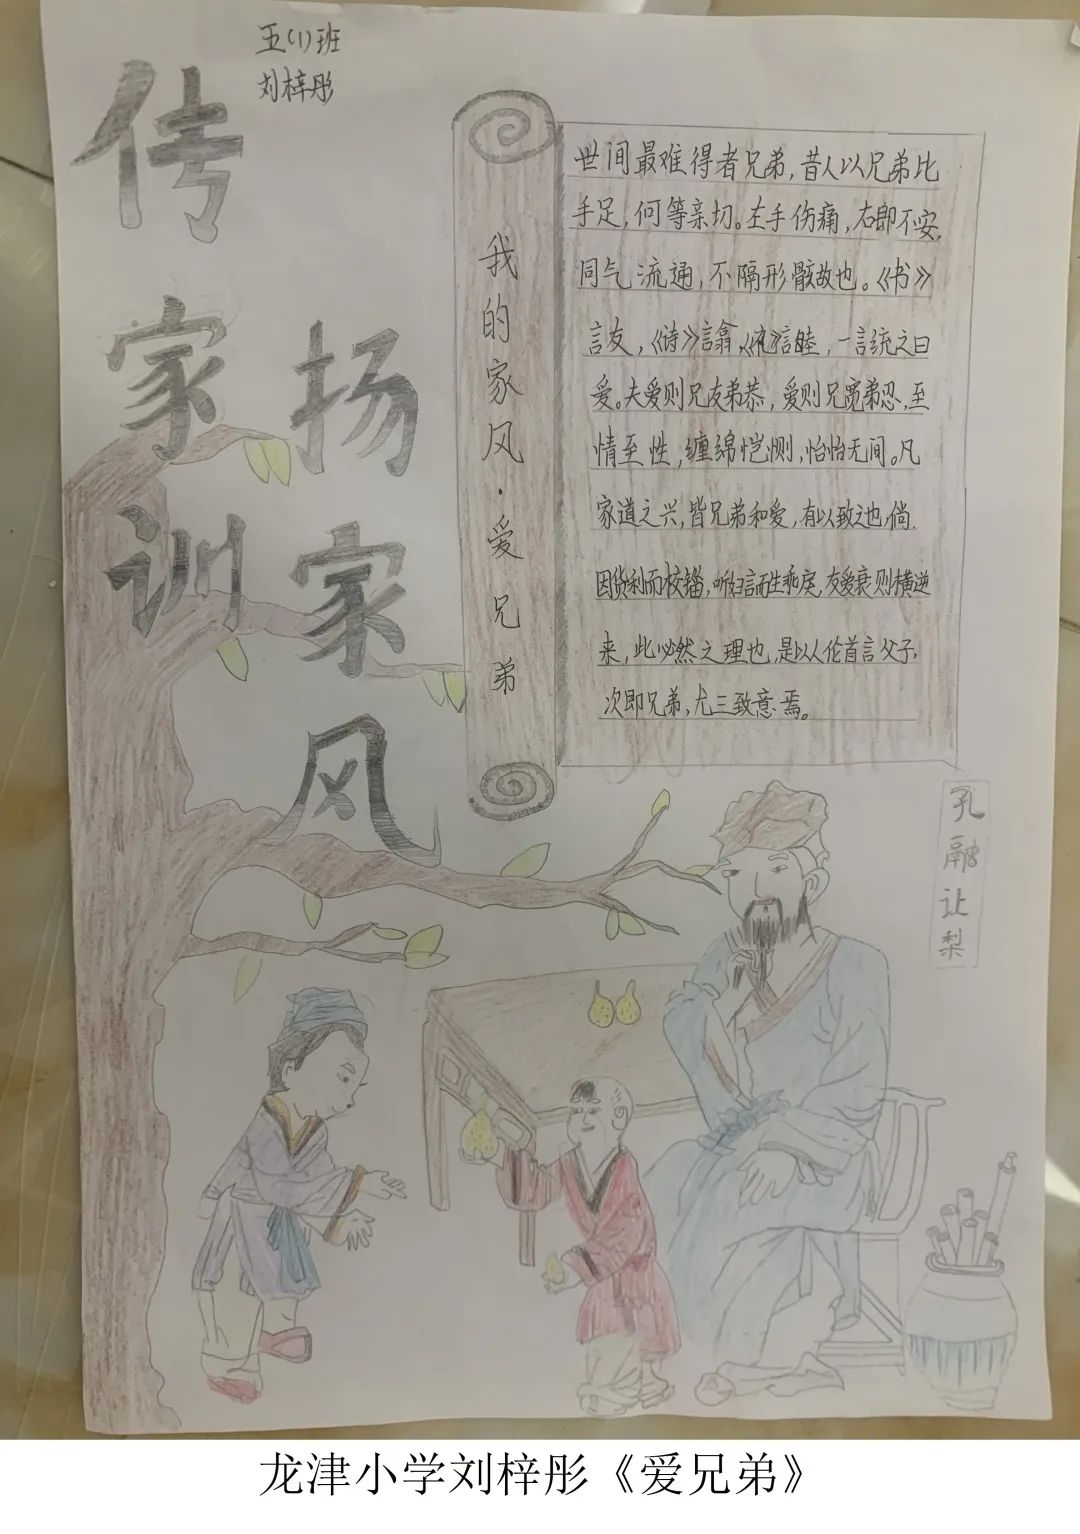 五(1)班
刘梓彤
传家训
扬家风
我的家风·爱兄弟
世间最难得者兄弟,昔人以兄弟比
手足,何等亲切。左手伤痛,右即不安,
同气流通,不隔形骸故也。《书》
言友,《诗》言翕,《礼》言睦,一言统之曰
爱。夫爱则兄友弟恭,爱则兄宽弟忍,至
情至性,缠绵恺恻,怡怡无间。凡
家道之兴,皆兄弟和爱,有以致之也,倘
因货利而校锱,听妇言而生乖戾,友爱衰则横逆
来,此必然之理也,是以人伦首言父子,
次即兄弟,尤三致意焉。
孔融让梨
龙津小学刘梓彤《爱兄弟》